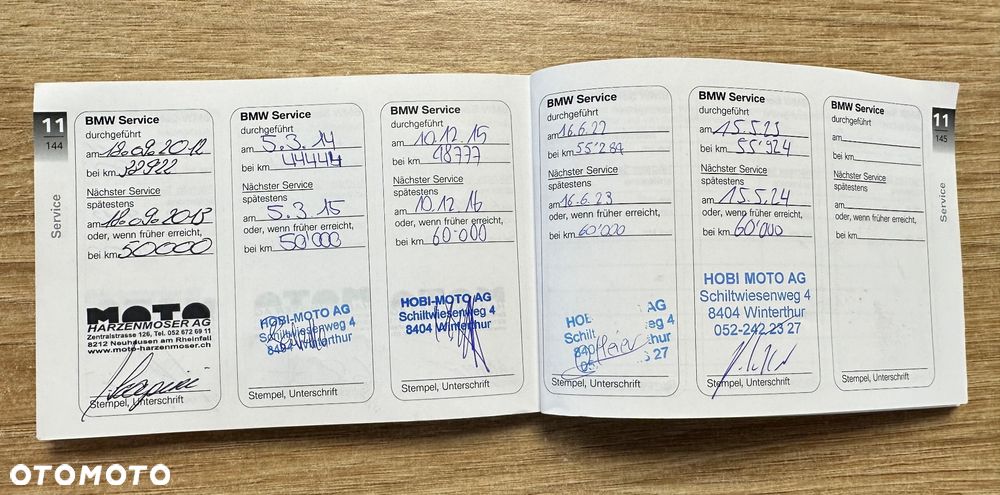 11
144
Service
BMW Service
durchgeführt
am 18.09.2012
bei km 32922
Nächster Service
spätestens
am 18.09.2013
oder, wenn früher erreicht,
bei km 50000
MOTO
HARZENMOSER AG
Zentralstrasse 126, Tel. 052 672 69 11
8212 Neuhausen am Rheinfall
www.moto-harzenmoser.ch
Stempel, Unterschrift
BMW Service
durchgeführt
am 5.3.14
bei km 44444
Nächster Service
spätestens
am 5.3.15
oder, wenn früher erreicht,
bei km 50'000
HOBI-MOTO AG
Schiltwiesenweg 4
8404 Winterthur
Stempel, Unterschrift
BMW Service
durchgeführt
am 10.12.15
bei km 48777
Nächster Service
spätestens
am 10.12.16
oder, wenn früher erreicht,
bei km 60-000
HOBI-MOTO AG
Schiltwiesenweg 4
8404 Winterthur
Stempel, Unterschrift
BMW Service
durchgeführt
am 16.6.22
bei km 55'287
Nächster Service
spätestens
am 16.6.23
oder, wenn früher erreicht,
bei km 60'000
HO AG
Schilt eg 4
840 hur
05 27
Stempel, Unterschrift
BMW Service
durchgeführt
am 15.5.23
bei km 55'924
Nächster Service
spätestens
am 15.5.24
oder, wenn früher erreicht,
bei km 60'000
HOBI MOTO AG
Schiltwiesenweg 4
8404 Winterthur
052-242 23 27
Stempel, Unterschrift
BMW Service
durchgeführt
am
bei km
Nächster Service
spätestens
am
oder, wenn früher erreicht,
bei km
Stempel, Unterschrift
11
145
Service
OTOMOTO